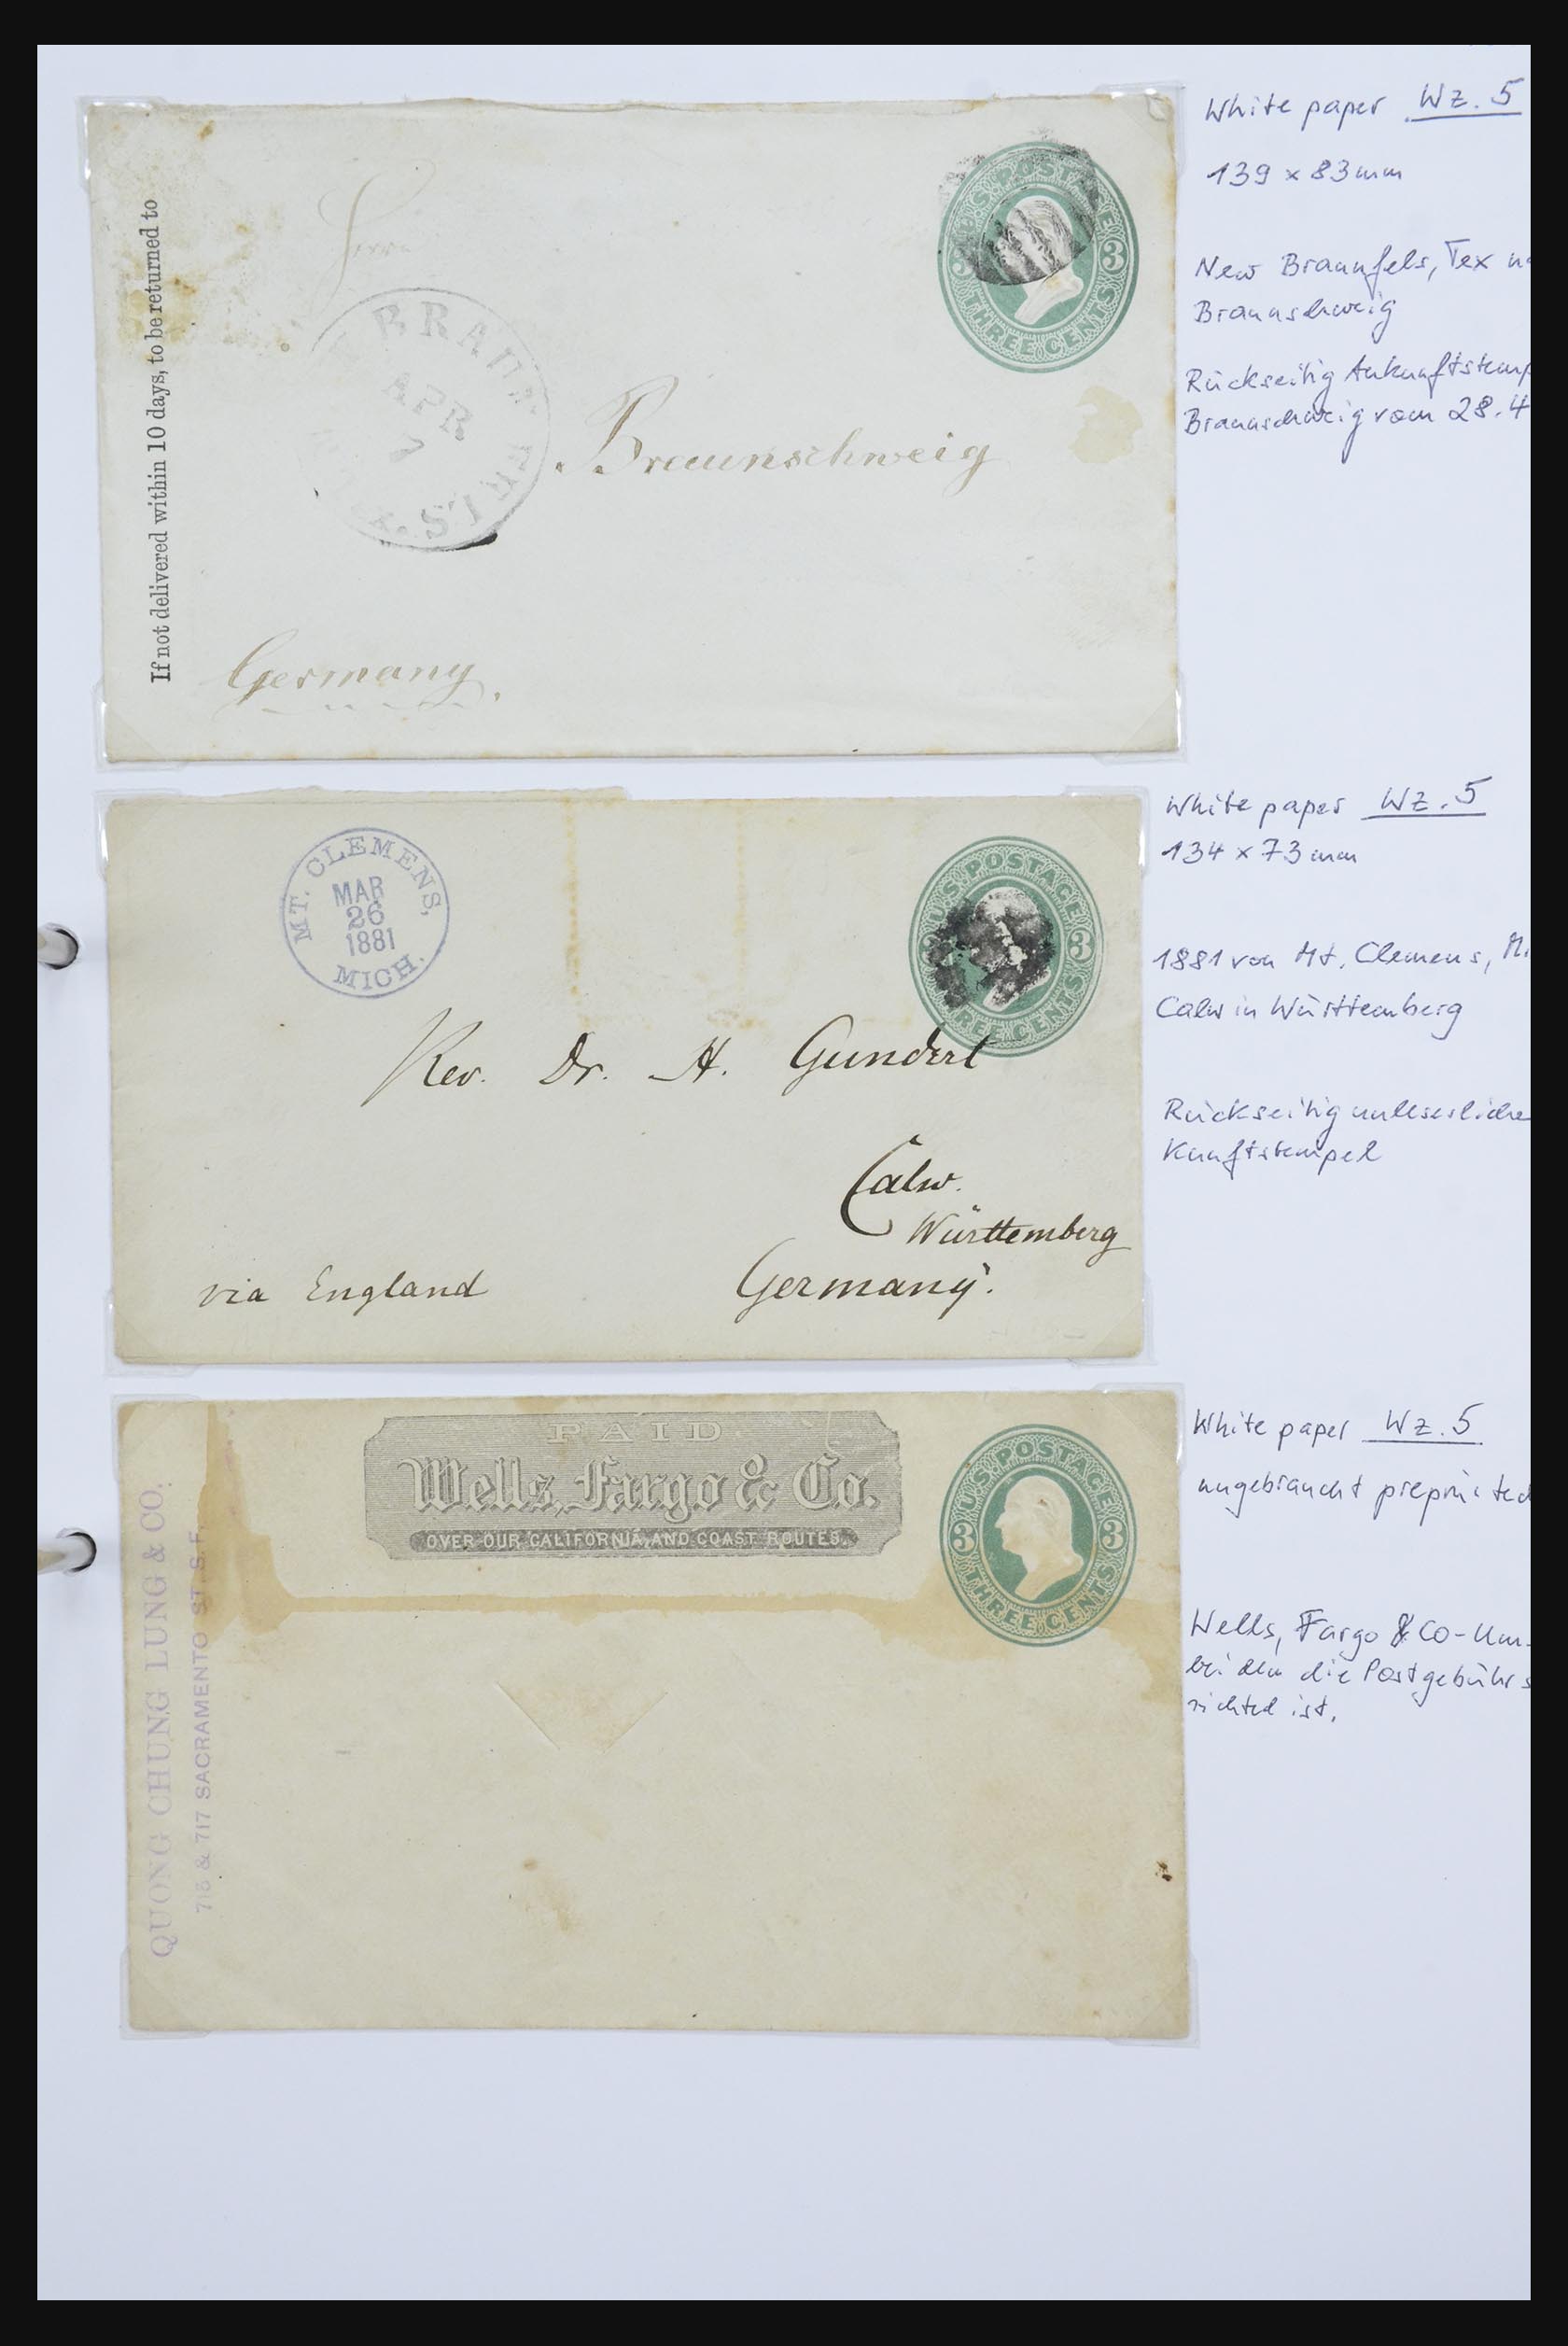 White paper Wz. 5
139 x 83 mm
New Braunfels, Tex
Braunschweig
Rückseitig Ankunftstemp
Braunschweig vom 28.4
If not delivered within 10 days, to be returned to
Herrn
U.S. POSTAGE
3 3
THREE CENTS
BRAUNFELS
APR
7
Braunschweig
Germany.
White paper Wz. 5
134 x 73 mm
1881 von Mt. Clemens, M.
Calw in Württemberg
Rückseitig unleserliche
kunftstempel
MT. CLEMENS,
MAR
26
1881
MICH.
U.S. POSTAGE
3
THREE CENTS
Rev. Dr. H. Gundert
Calw.
Württemberg
via England Germany.
White paper Wz. 5
ungebraucht preprinted
Wells, Fargo & Co-Um-
bei dem die Postgebühr
richted ist.
PAID
Wells, Fargo & Co.
OVER OUR CALIFORNIA, AND COAST ROUTES.
U.S. POSTAGE
3 3
THREE CENTS
QUONG CHUNG LUNG & CO.
715 & 717 SACRAMENTO ST. S.F.